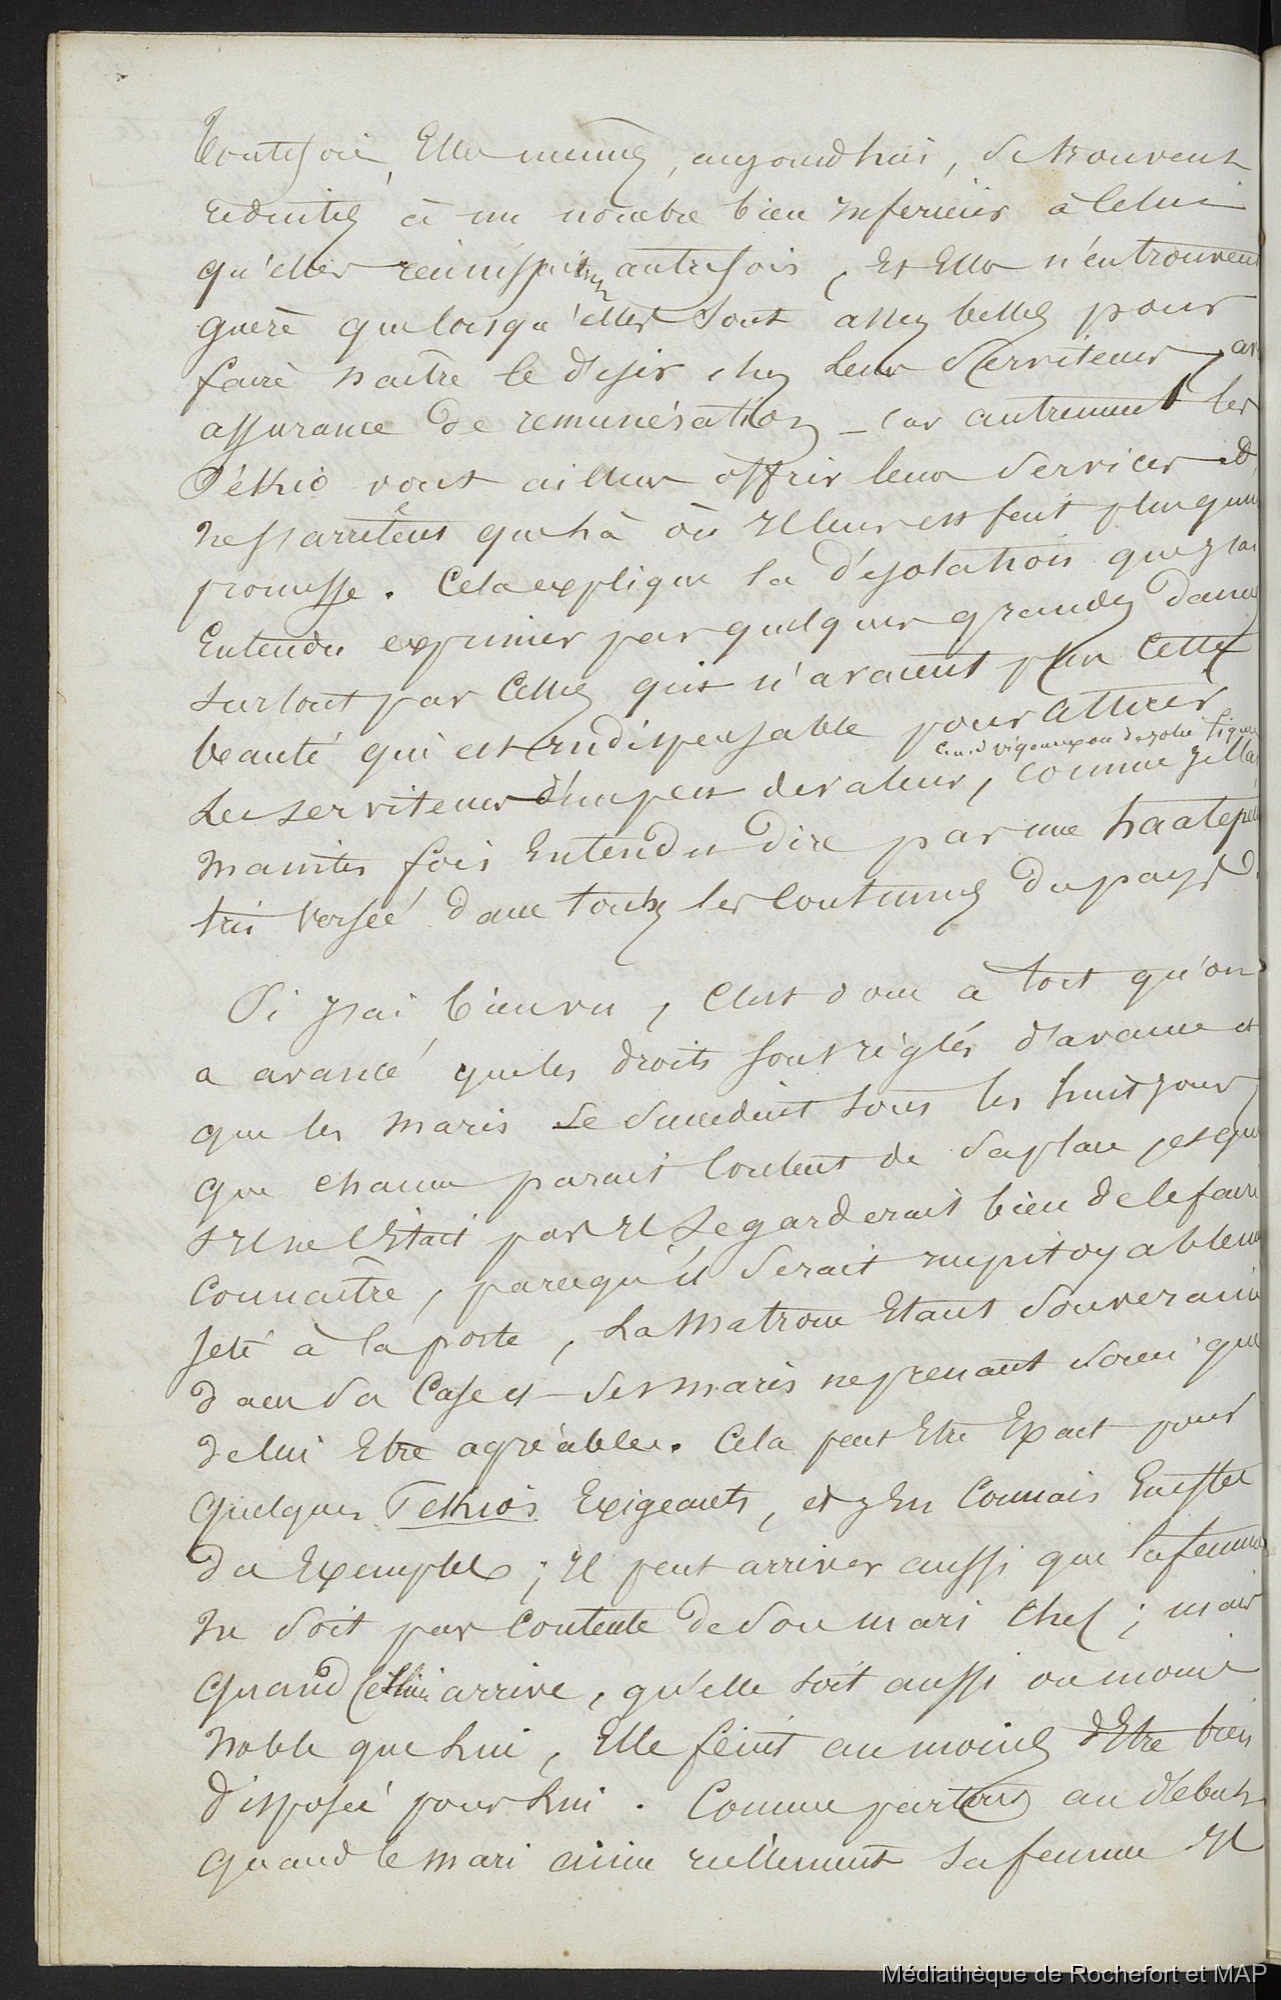 Toutefois, Elles mêmes, aujourd'hui, se trouvent
réduites à un nombre bien inferieur à Celui
qu'elles réunissaient autrefois, Et Elles n'en trouvent
guère que lorsqu'elles sont assez belles pour
faire naitre le désir chez leurs serviteurs,
assurance de remunération _ car autrement les
Pékio vont ailleurs offrir leurs services et
ne s'arrêtent que là où Il leur est fait plus qu'une
promesse. Cela explique la désolation que j'ai
Entendu exprimer par quelques grandes dames
surtout par Celles qui n'avaient plus Cette
beauté qui est indispensable pour attirer
c.a.d vigoureux ou de jolie figure
les serviteurs d'un peu de valeur, comme je l'ai
maintes fois Entendu dire par une haatepéi
très versée dans toutes les Coutumes du pays.
Si j'ai bien vu, C'est donc à tort qu'on
a avancé que les droits sont réglés d'avance et
que les maris se succedent tous les huit jours,
que chacun parait Content de sa place, et que
s'Il ne l'Etait pas Il se garderait bien de le faire
Connaître, parcequ'il serait impitoyablement
jeté à la porte, La Matrone Etant souveraine
dans sa Case et ses maris ne prenant souci que
de lui Etre agréables. Cela peut Etre Exact pour
Quelques Pekiós Exigeants, et j'En Connais En effet
des Exemples; Il peut arriver aussi que la femme
ne soit pas Contente de son mari Chef; mais
Quand Celui arrive, qu'elle soit aussi ou moins
noble que Lui, Elle feint au moins d'Etre bien
disposée pour Lui. Comme partout au début
Quand le mari aime réellement sa femme Il
Médiathèque de Rochefort et MAP